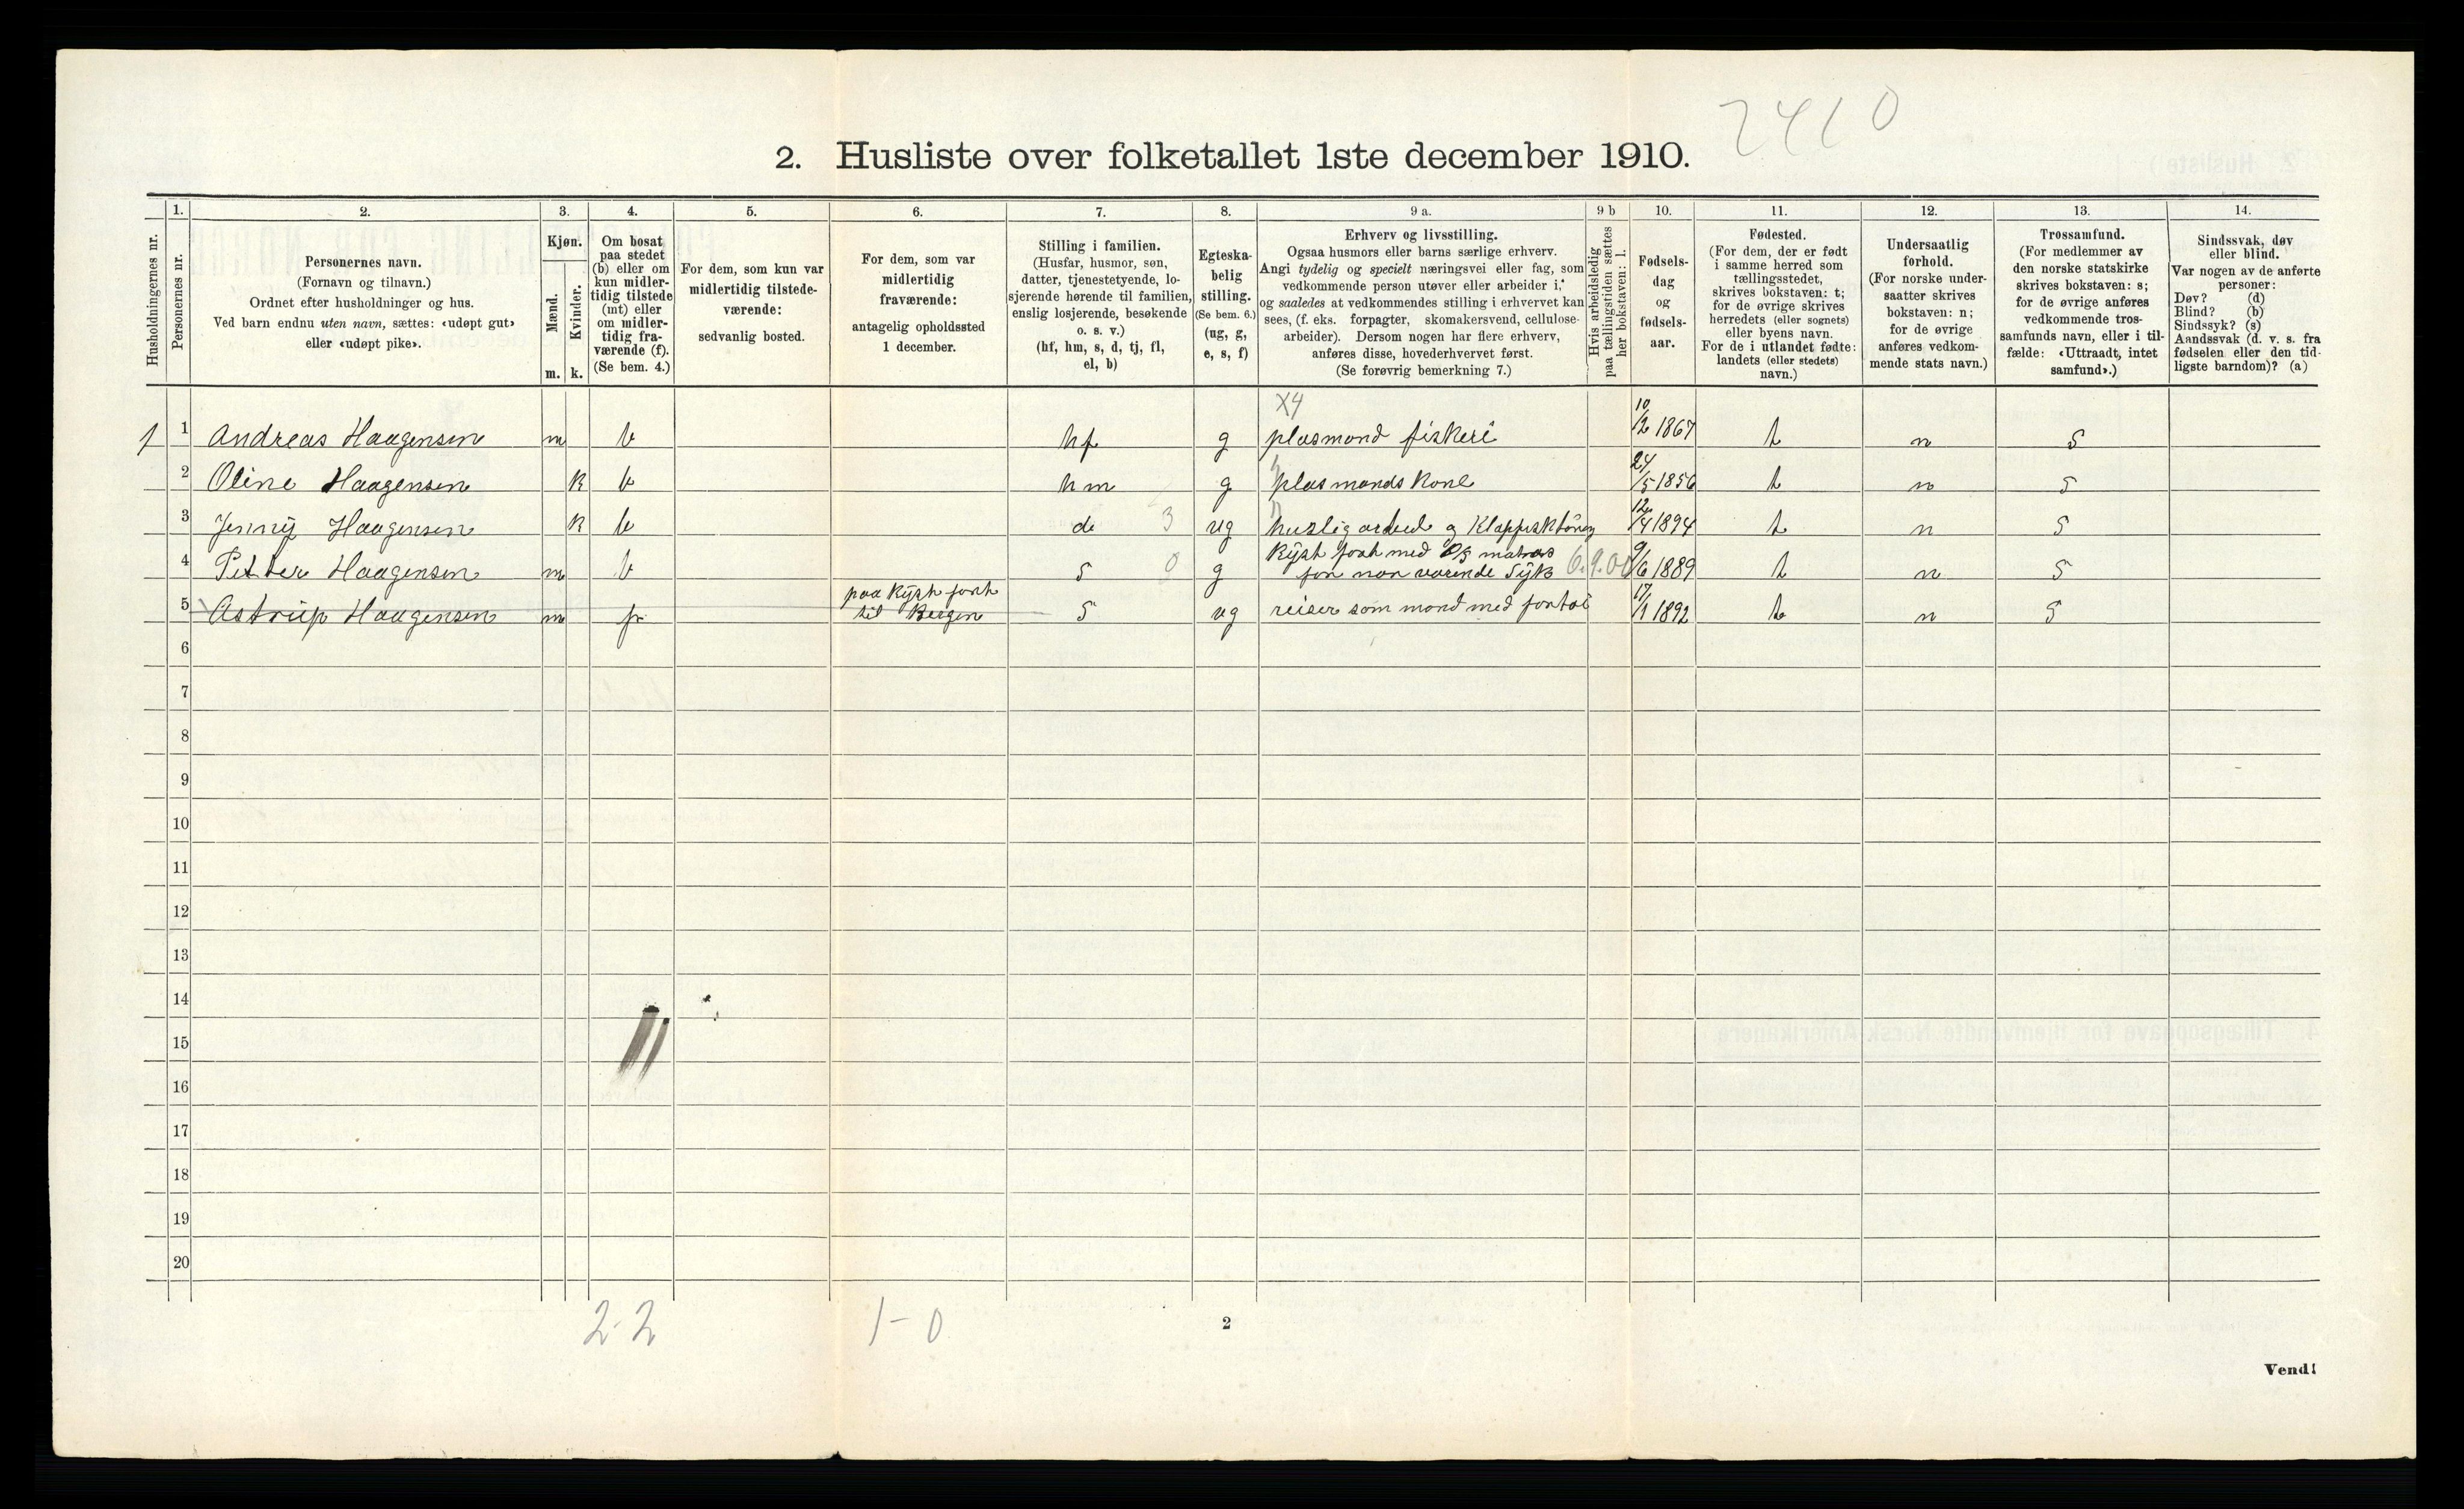 2410
2. Husliste over folketallet 1ste december 1910.
Husholdningernes nr.
1.
Personernes nr.
2.
Personernes navn.
(Fornavn og tilnavn.)
Ordnet efter husholdninger og hus.
Ved barn endnu uten navn, sættes: «udøpt gut»
eller «udøpt pike».
3.
Kjøn.
Mænd.
Kvinder.
m. k.
4.
Om bosat
paa stedet
(b) eller om
kun midler-
tidig tilstede
(mt) eller
om midler-
tidig fra-
værende (f).
(Se bem. 4.)
5.
For dem, som kun var
midlertidig tilstede-
værende:
sedvanlig bosted.
6.
For dem, som var
midlertidig
fraværende:
antagelig opholdssted
1 december.
7.
Stilling i familien.
(Husfar, husmor, søn,
datter, tjenestetyende, lo-
sjerende hørende til familien,
enslig losjerende, besøkende
o. s. v.)
(hf, hm, s, d, tj, fl,
el, b)
8.
Egteska-
belig
stilling.
(Se bem. 6.)
(ug, g,
e, s, f)
9 a.
Erhverv og livsstilling.
Ogsaa husmors eller barns særlige erhverv.
Angi tydelig og specielt næringsvei eller fag, som
vedkommende person utøver eller arbeider i,
og saaledes at vedkommendes stilling i erhvervet kan
sees, (f. eks. forpagter, skomakersvend, cellulose-
arbeider). Dersom nogen har flere erhverv,
anføres disse, hovederhvervet først.
(Se forøvrig bemerkning 7.)
9 b
Hvis arbeidsledig
paa tællingstiden sættes
her bokstaven: l.
10.
Fødsels-
dag
og
fødsels-
aar.
11.
Fødested.
(For dem, der er født
i samme herred som
tællingsstedet,
skrives bokstaven: t;
for de øvrige skrives
herredets (eller sognets)
eller byens navn.
For de i utlandet fødte:
landets (eller stedets)
navn.)
12.
Undersaatlig
forhold.
(For norske under-
saatter skrives
bokstaven: n;
for de øvrige
anføres vedkom-
mende stats navn.)
13.
Trossamfund.
(For medlemmer av
den norske statskirke
skrives bokstaven: s;
for de øvrige anføres
vedkommende tros-
samfunds navn, eller i til-
fælde: «Uttraadt, intet
samfund».)
14.
Sindssvak, døv
eller blind.
Var nogen av de anførte
personer:
Døv? (d)
Blind? (b)
Sindssyk? (s)
Aandssvak (d. v. s. fra
fødselen eller den tid-
ligste barndom)? (a)
X4
1 1 Andreas Haagensen m b hf g plasmand fiskeri 10/2 1867 t n s
2 Oline Haagensen k b hm g plasmands kone 24/5 1856 t n s
3 Jenny Haagensen k b d 3 ug huslig og 12/4 1894 t n s
4 Petter Haagensen m b s 0 g kyst fart med matros
for nærværende syk 9/6 1889 t n s
5 Astrup Haagensen m f paa kyst fart
til Bergen s ug reiser som mand med 17/1 1892 t n s
6
7
8
9
10
11
12
13
14
15
16
17
18
19
20
2-2 1-0
2
Vend!